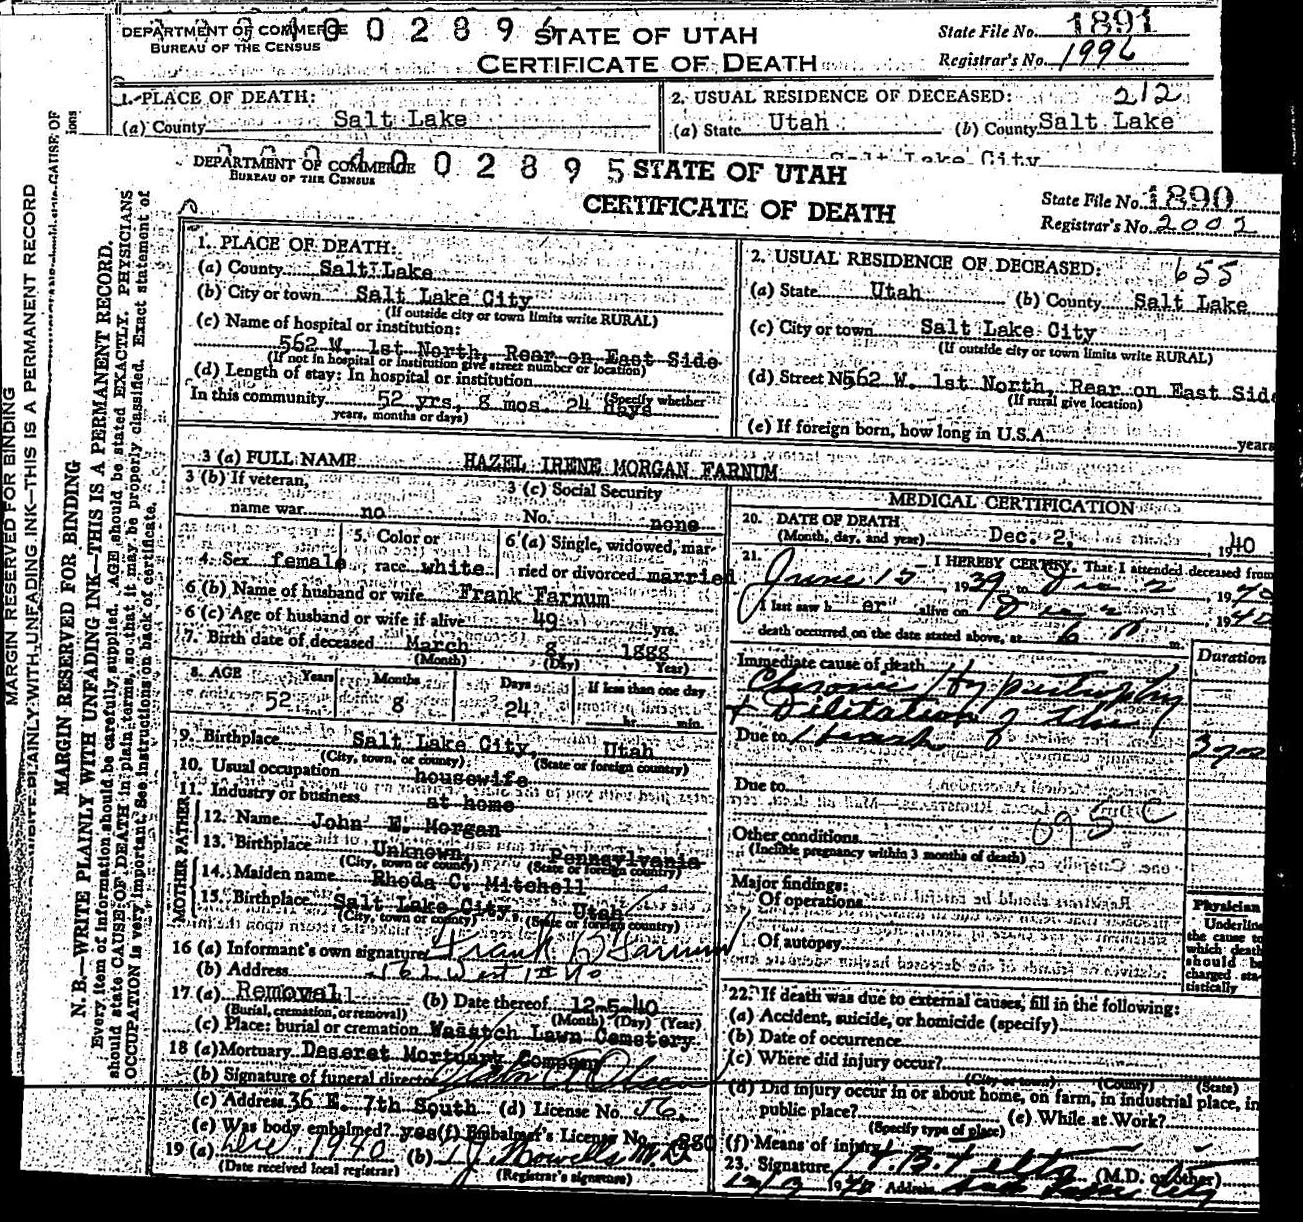 DEPARTMENT OF COMMERCE
BUREAU OF THE CENSUS
0 0 2 8 9 6
STATE OF UTAH
CERTIFICATE OF DEATH
State File No. 1891
Registrar's No. 1996
1. PLACE OF DEATH:
(a) County Salt Lake
2. USUAL RESIDENCE OF DECEASED: 212
(a) State Utah (b) County Salt Lake
Salt Lake City
MARGIN RESERVED FOR BINDING
WRITE PLAINLY WITH UNFADING INK—THIS IS A PERMANENT RECORD
MARGIN RESERVED FOR BINDING
N. B.—WRITE PLAINLY WITH UNFADING INK—THIS IS A PERMANENT RECORD.
Every item of information should be carefully supplied. AGE should be stated EXACTLY. PHYSICIANS
should state CAUSE OF DEATH in plain terms, so that it may be properly classified. Exact statement of
OCCUPATION is very important. See instructions on back of certificate.
DEPARTMENT OF COMMERCE
BUREAU OF THE CENSUS
0 0 2 8 9 5
STATE OF UTAH
CERTIFICATE OF DEATH
State File No. 1890
Registrar's No. 2002
1. PLACE OF DEATH:
(a) County Salt Lake
(b) City or town Salt Lake City
(If outside city or town limits write RURAL)
(c) Name of hospital or institution:
562 W. 1st North, Rear on East Side
(If not in hospital or institution give street number or location)
(d) Length of stay: In hospital or institution
(Specify whether
In this community 52 yrs. 8 mos. 24 days
years, months or days)
2. USUAL RESIDENCE OF DECEASED: 655
(a) State Utah (b) County Salt Lake
(c) City or town Salt Lake City
(If outside city or town limits write RURAL)
(d) Street No 562 W. 1st North, Rear on East Side
(If rural give location)
(e) If foreign born, how long in U.S.A. years
3 (a) FULL NAME HAZEL IRENE MORGAN FARNUM
3 (b) If veteran,
name war no
3 (c) Social Security
No. none
4. Sex female
5. Color or
race white
6 (a) Single, widowed, mar-
ried or divorced married
6 (b) Name of husband or wife Frank Farnum
6 (c) Age of husband or wife if alive 49 yrs.
7. Birth date of deceased March 8 1888
(Month) (Day) Year)
8. AGE Years Months Days If less than one day
52 8 24 hr. min.
9. Birthplace Salt Lake City, Utah
(City, town, or county) (State or foreign country)
10. Usual occupation housewife
11. Industry or business at home
FATHER
12. Name John E. Morgan
13. Birthplace Unknown, Pennsylvania
(City, town or county) (State or foreign country)
MOTHER
14. Maiden name Rhoda C. Mitchell
15. Birthplace Salt Lake City, Utah
(City, town or county) (State or foreign country)
16 (a) Informant's own signature Frank B Farnum
(b) Address 562 West 1st No
17 (a) Removal (b) Date thereof 12-5-40
(Burial, cremation, or removal) (Month) (Day) (Year)
(c) Place: burial or cremation Wasatch Lawn Cemetery
18 (a) Mortuary Deseret Mortuary Company
(b) Signature of funeral director
(c) Address 36 E. 7th South (d) License No. 56
(e) Was body embalmed? yes (f) Embalmer's License No. 280
19 (a) 1940 (b) M.D.
(Date received local registrar) (Registrar's signature)
MEDICAL CERTIFICATION
20. DATE OF DEATH
(Month, day, and year) Dec. 2, 1940
21. I HEREBY CERTIFY, That I attended deceased from
June 15 1939 to Dec 2 1940
I last saw her alive on Dec 2 1940
death occurred on the date stated above, at 6 m.
Duration
Immediate cause of death
Chronic Hypertrophy
& Dilitation of the
Due to Heart 3 yrs
Due to
095 C
Other conditions
(Include pregnancy within 3 months of death)
Major findings:
Of operations
Of autopsy
Physician
Underline
the cause to
which death
should be
charged sta-
tistically
22. If death was due to external causes, fill in the following:
(a) Accident, suicide, or homicide (specify)
(b) Date of occurrence
(c) Where did injury occur?
(City or town) (County) (State)
(d) Did injury occur in or about home, on farm, in industrial place, in
public place? (e) While at Work?
(Specify type of place)
(f) Means of injury
23. Signature H. B. Felts (M.D. or other)
12/3 1940 Address Salt Lake City